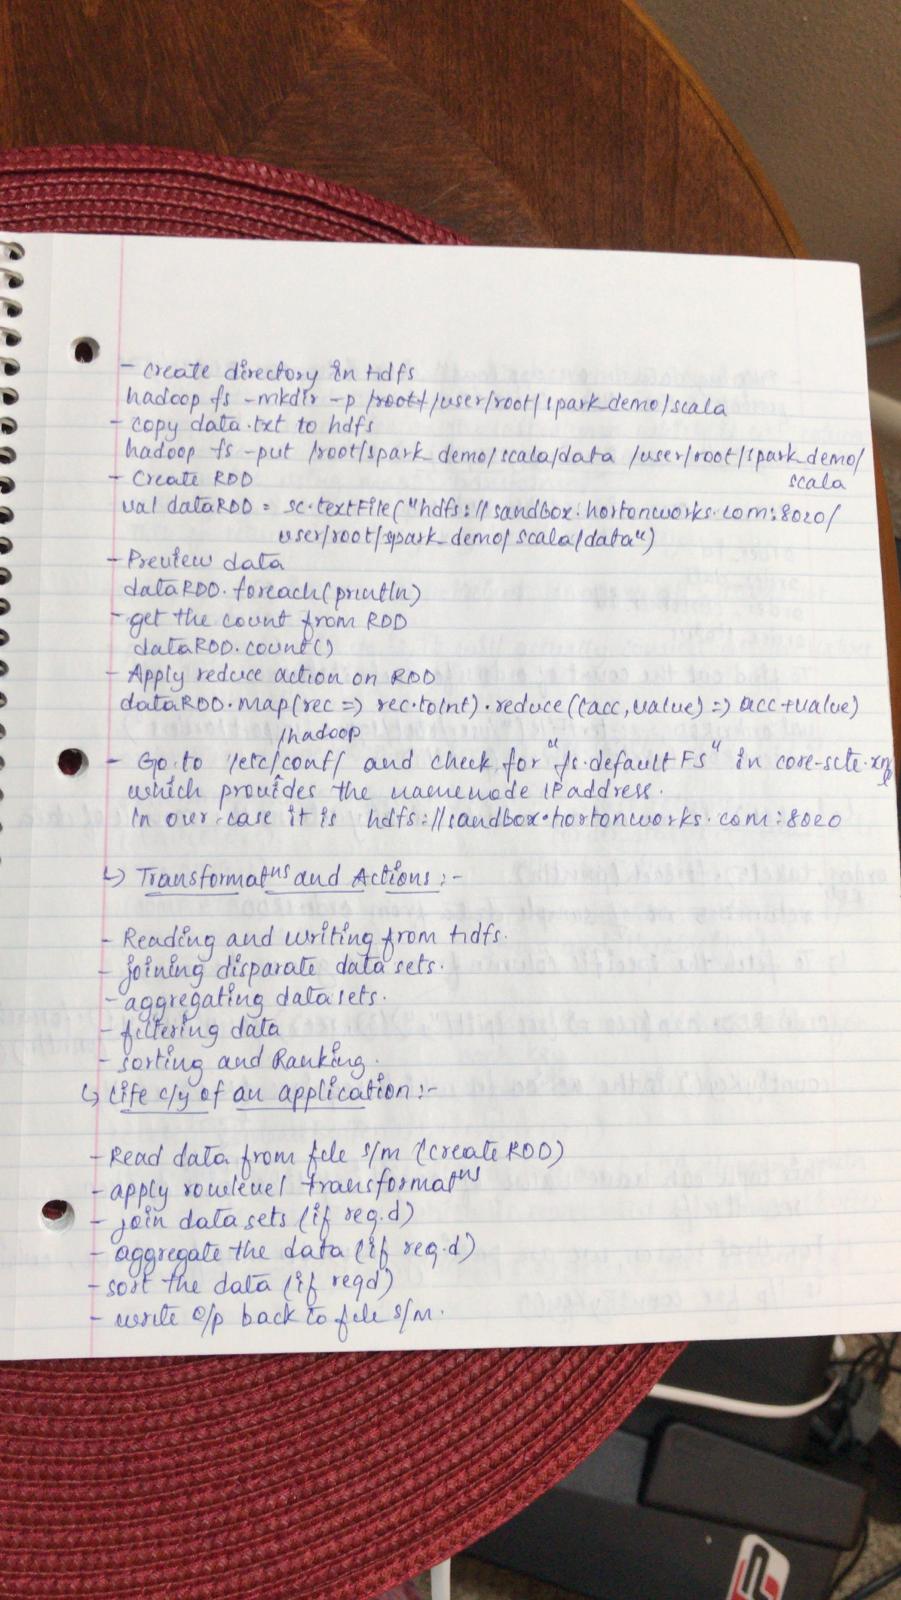 - create directory in hdfs
hadoop fs -mkdir -p /root/user/root/spark_demo/scala
- copy data.txt to hdfs
hadoop fs -put /root/spark_demo/scala/data /user/root/spark_demo/
scala
- Create RDD
val dataRDD = sc.textFile("hdfs://sandbox.hortonworks.com:8020/
user/root/spark_demo/scala/data")
- Preview data
dataRDD.foreach(println)
- get the count from RDD
dataRDD.count()
- Apply reduce action on RDD
dataRDD.map(rec => rec.toInt).reduce((acc,value) => acc+value)
/hadoop
- Go to /etc/conf/ and check for "fs.defaultFS" in core-site.xml
which provides the namenode IP address.
In our case it is hdfs://sandbox.hortonworks.com:8020
↳ Transformatns and Actions :-
- Reading and writing from hdfs.
- joining disparate data sets.
- aggregating data sets.
- filtering data
- sorting and Ranking.
↳ Life c/y of an application :-
- Read data from file s/m (create RDD)
- apply rowlevel transformatns
- join data sets (if req.d)
- aggregate the data (if req.d)
- sort the data (if reqd)
- write o/p back to file s/m.